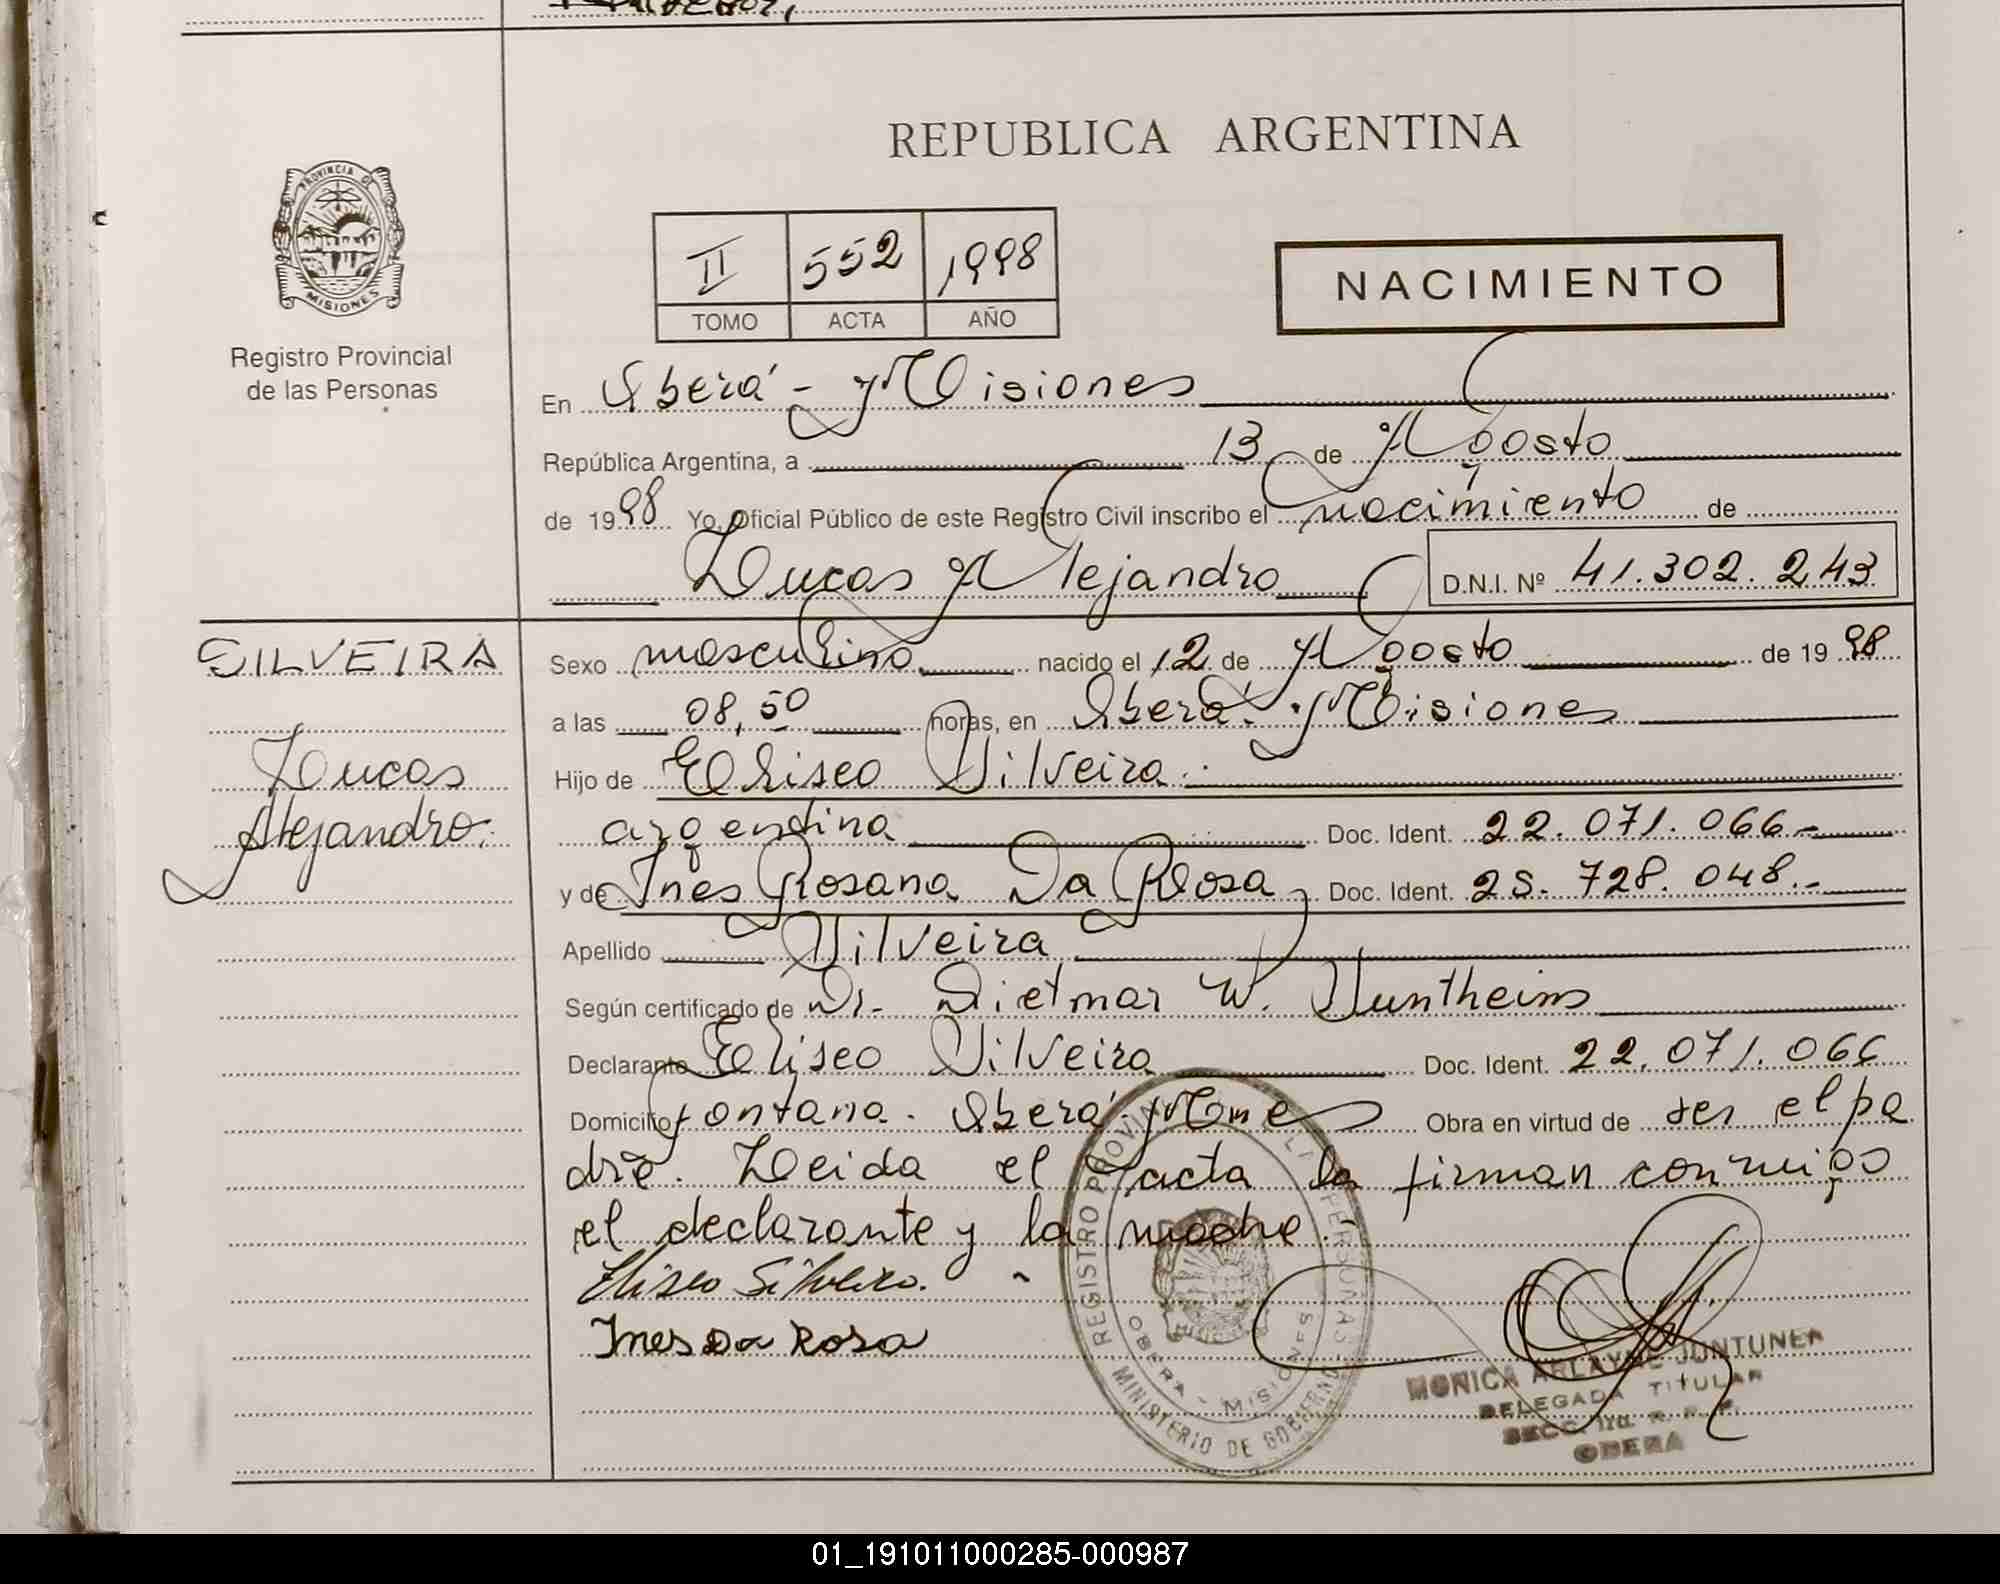 PROVINCIA DE
MISIONES
Registro Provincial
de las Personas
REPUBLICA ARGENTINA
II 552 1998
TOMO ACTA AÑO
NACIMIENTO
En Oberá - Misiones
República Argentina, a 13 de Agosto
de 1998 Yo, Oficial Público de este Registro Civil inscribo el nacimiento de
Lucas Alejandro D.N.I. Nº 41.302.243
SILVEIRA
Lucas
Alejandro.
Sexo masculino nacido el 12 de Agosto de 1998
a las 08,50 horas, en Oberá. Misiones
Hijo de Eliseo Silveira.
argentina Doc. Ident. 22.071.066.-
y de Ines Rosana Da Rosa, Doc. Ident. 25.728.048.-
Apellido Silveira
Según certificado de Dr. Dietmar W.
Declarante Eliseo Silveira Doc. Ident. 22.071.066
Domicilio Fontana. Oberá. Mnes Obra en virtud de ser el pa
dre. Leida el acta la firman conmigo
el declarante y la madre.
Eliseo Silveira.
Ines Da Rosa
REGISTRO PROVINCIAL DE LAS PERSONAS
OBERA - MISIONES
MINISTERIO DE GOBIERNO
MONICA ARLAYNE JUNTUNEN
DELEGADA TITULAR
SECC. 1ra. R. P. P.
OBERA
01_191011000285-000987